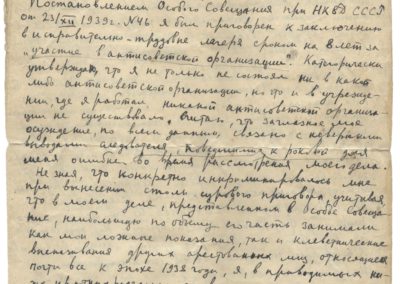 Постановлением Особого Совещания при НКВД СССР
от 23/XII 1939г. №46 я был приговорен к заключению
в исправительно-трудовые лагеря сроком на 8 лет за
"участие в антисоветской организации". Категорически
утверждаю, что я не только не состоял ни в какой
либо антисоветской организации, но что и в учрежде-
нии, где я работал никакой антисоветской организа-
ции не существовало. Считаю, что заглазное мое
осуждение, по всем данным, связано с неверными
выводами следователя, к роковой для
меня ошибке во время рассмотрения моего дела.
Не зная, что конкретно инкриминировалось мне
при вынесении столь сурового приговора, учитывая,
что в моем деле, представленном в Особое Совеща-
ние, наибольшую по объему его часть занимали
как мои ложные показания, так и клеветнические
других арестованных лиц, относящиеся
почти все к эпохе 1938 года, я, в приводимых ни-